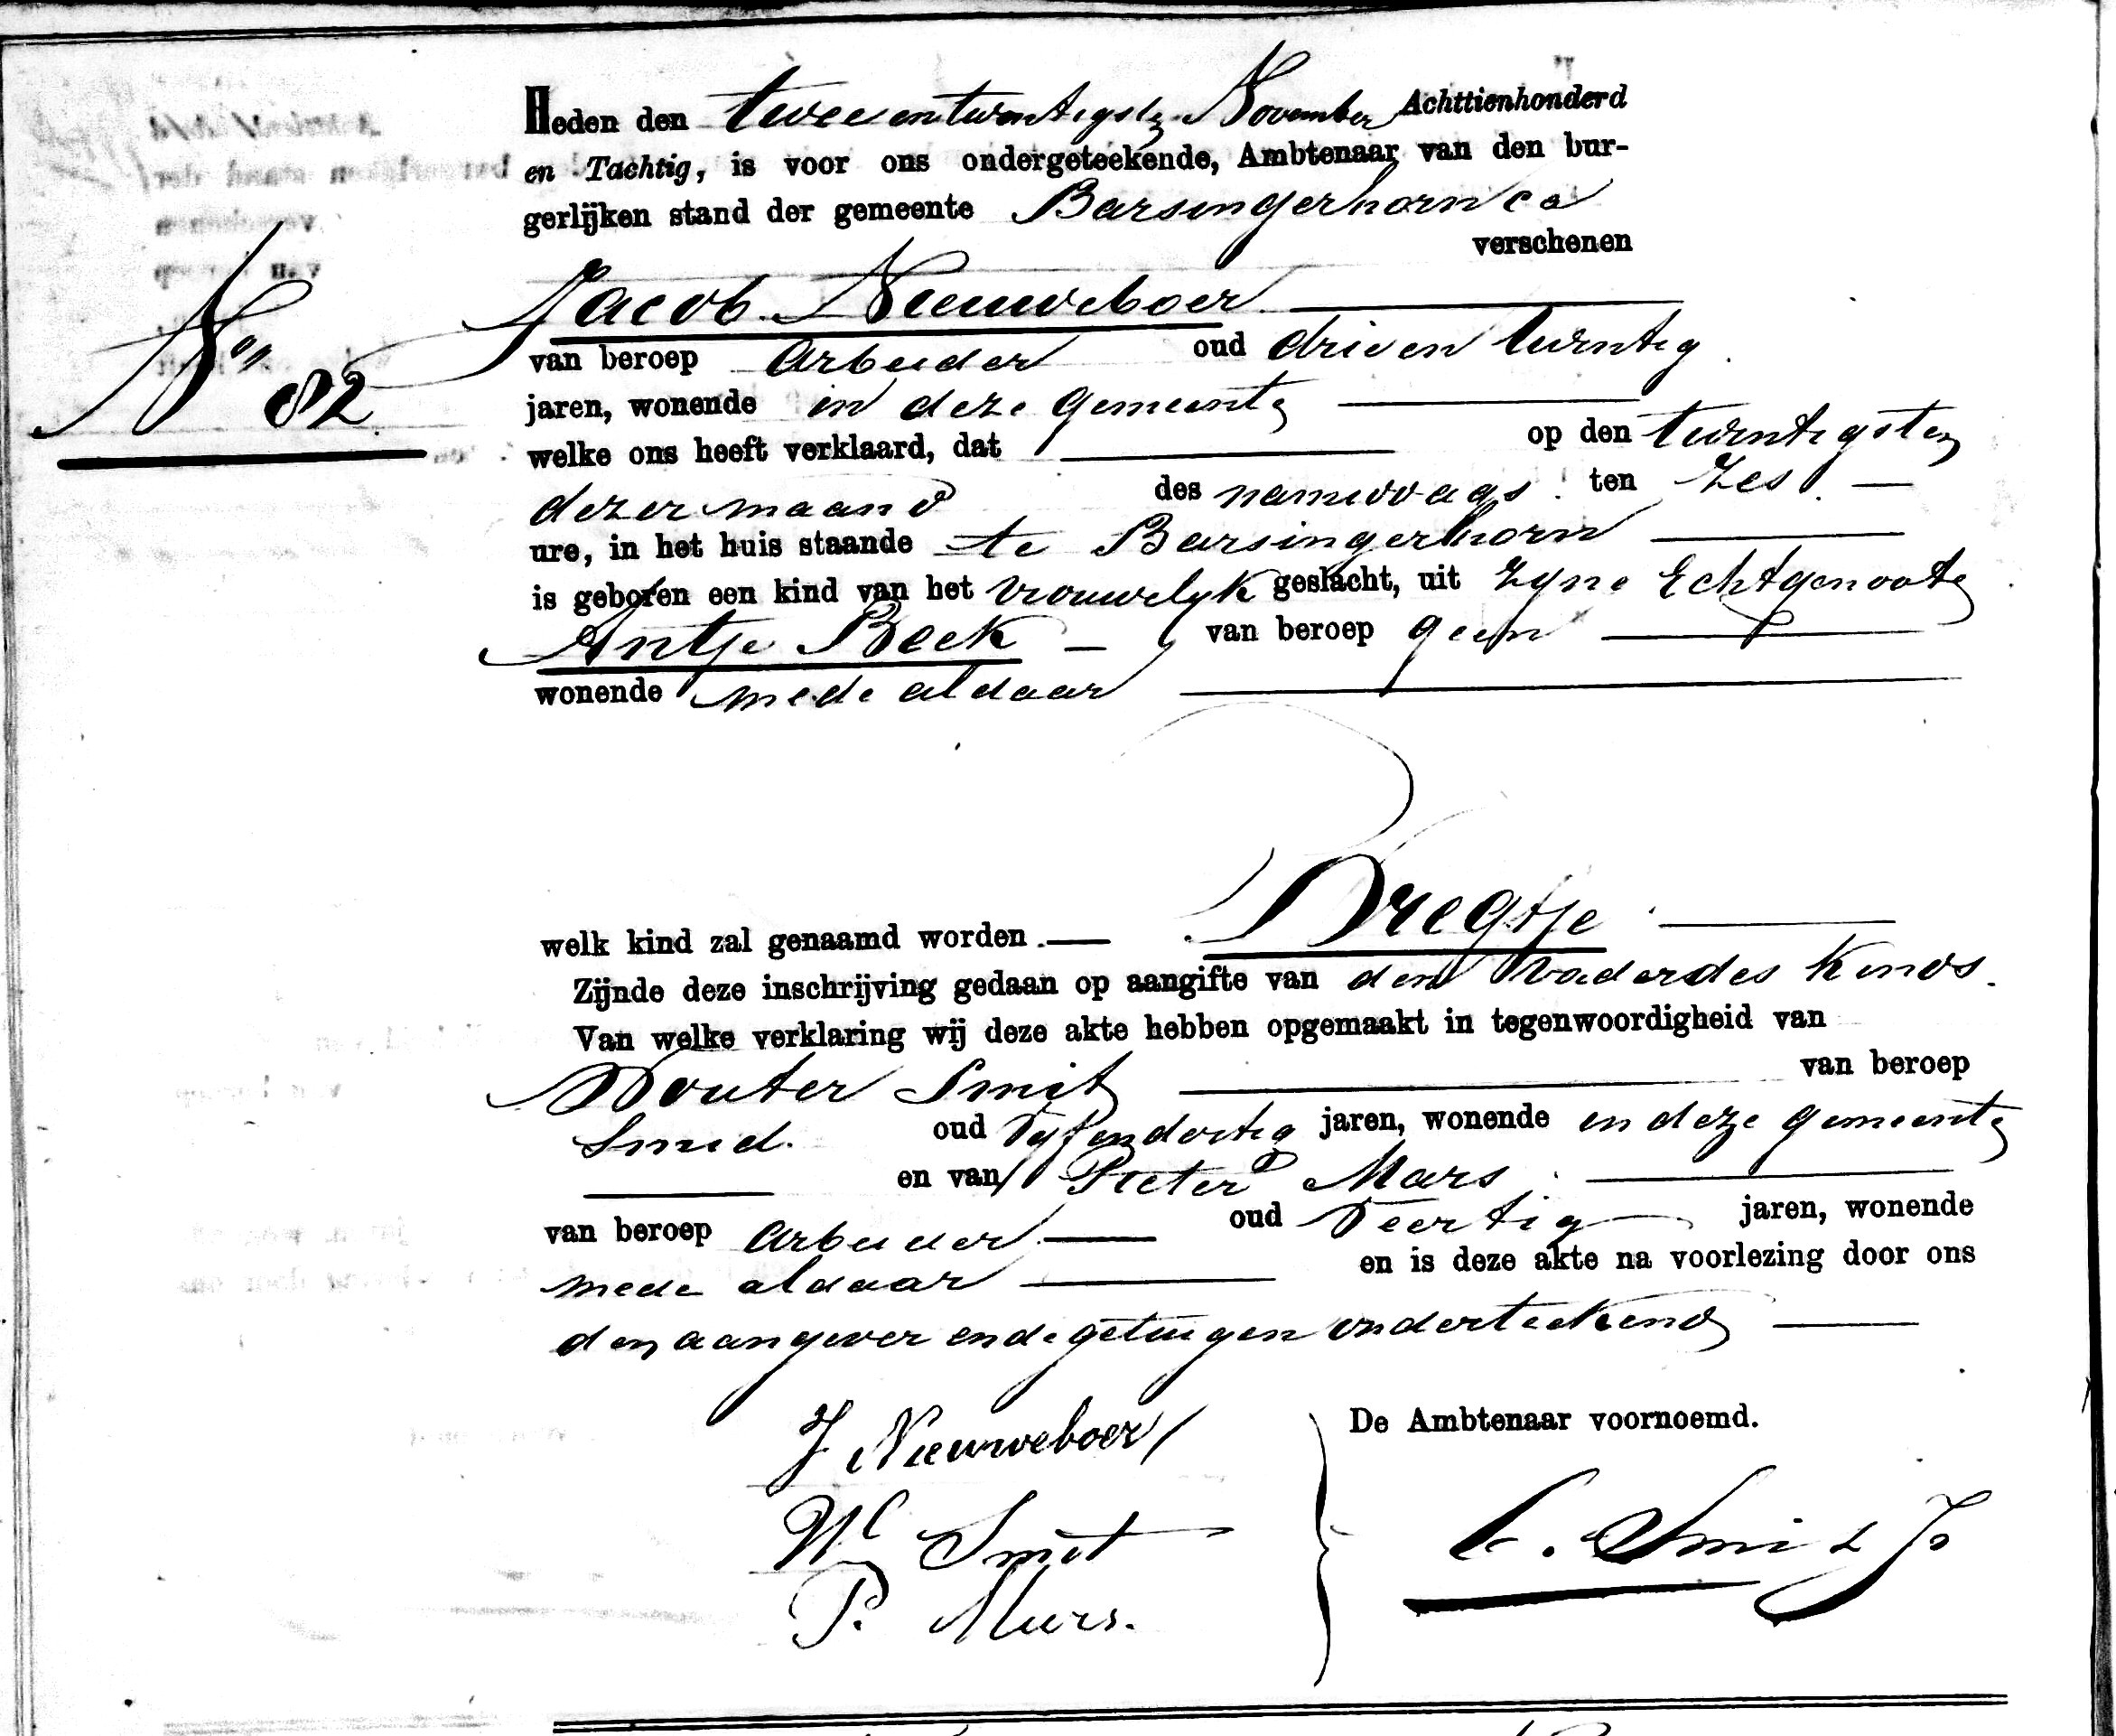 Heden den tweeentwintigsten November Achttienhonderd
en Tachtig, is voor ons ondergeteekende, Ambtenaar van den bur-
gerlijken stand der gemeente Barsingerhorn ca
verschenen
Jacob Nieuweboer
No 82
van beroep Arbeider oud drieen twintig
jaren, wonende in deze gemeente
welke ons heeft verklaard, dat op den twintigsten
dezer maand des namiddags ten zes
ure, in het huis staande te Barsingerhorn
is geboren een kind van het vrouwelyk geslacht, uit zyne Echtgenoote
Antje Beek van beroep geen
wonende mede aldaar
welk kind zal genaamd worden Dregtje
Zijnde deze inschrijving gedaan op aangifte van den vader des Kinds.
Van welke verklaring wij deze akte hebben opgemaakt in tegenwoordigheid van
Wouter Smit van beroep
Smid. oud Vyfendertig jaren, wonende in deze gemeente
en van Pieter Mars
van beroep Arbeider oud Veertig jaren, wonende
mede aldaar en is deze akte na voorlezing door ons
den aangever en de getuigen onderteekend
J Nieuweboer
De Ambtenaar voornoemd.
W Smit
C. Smit Jr
P. Mars.